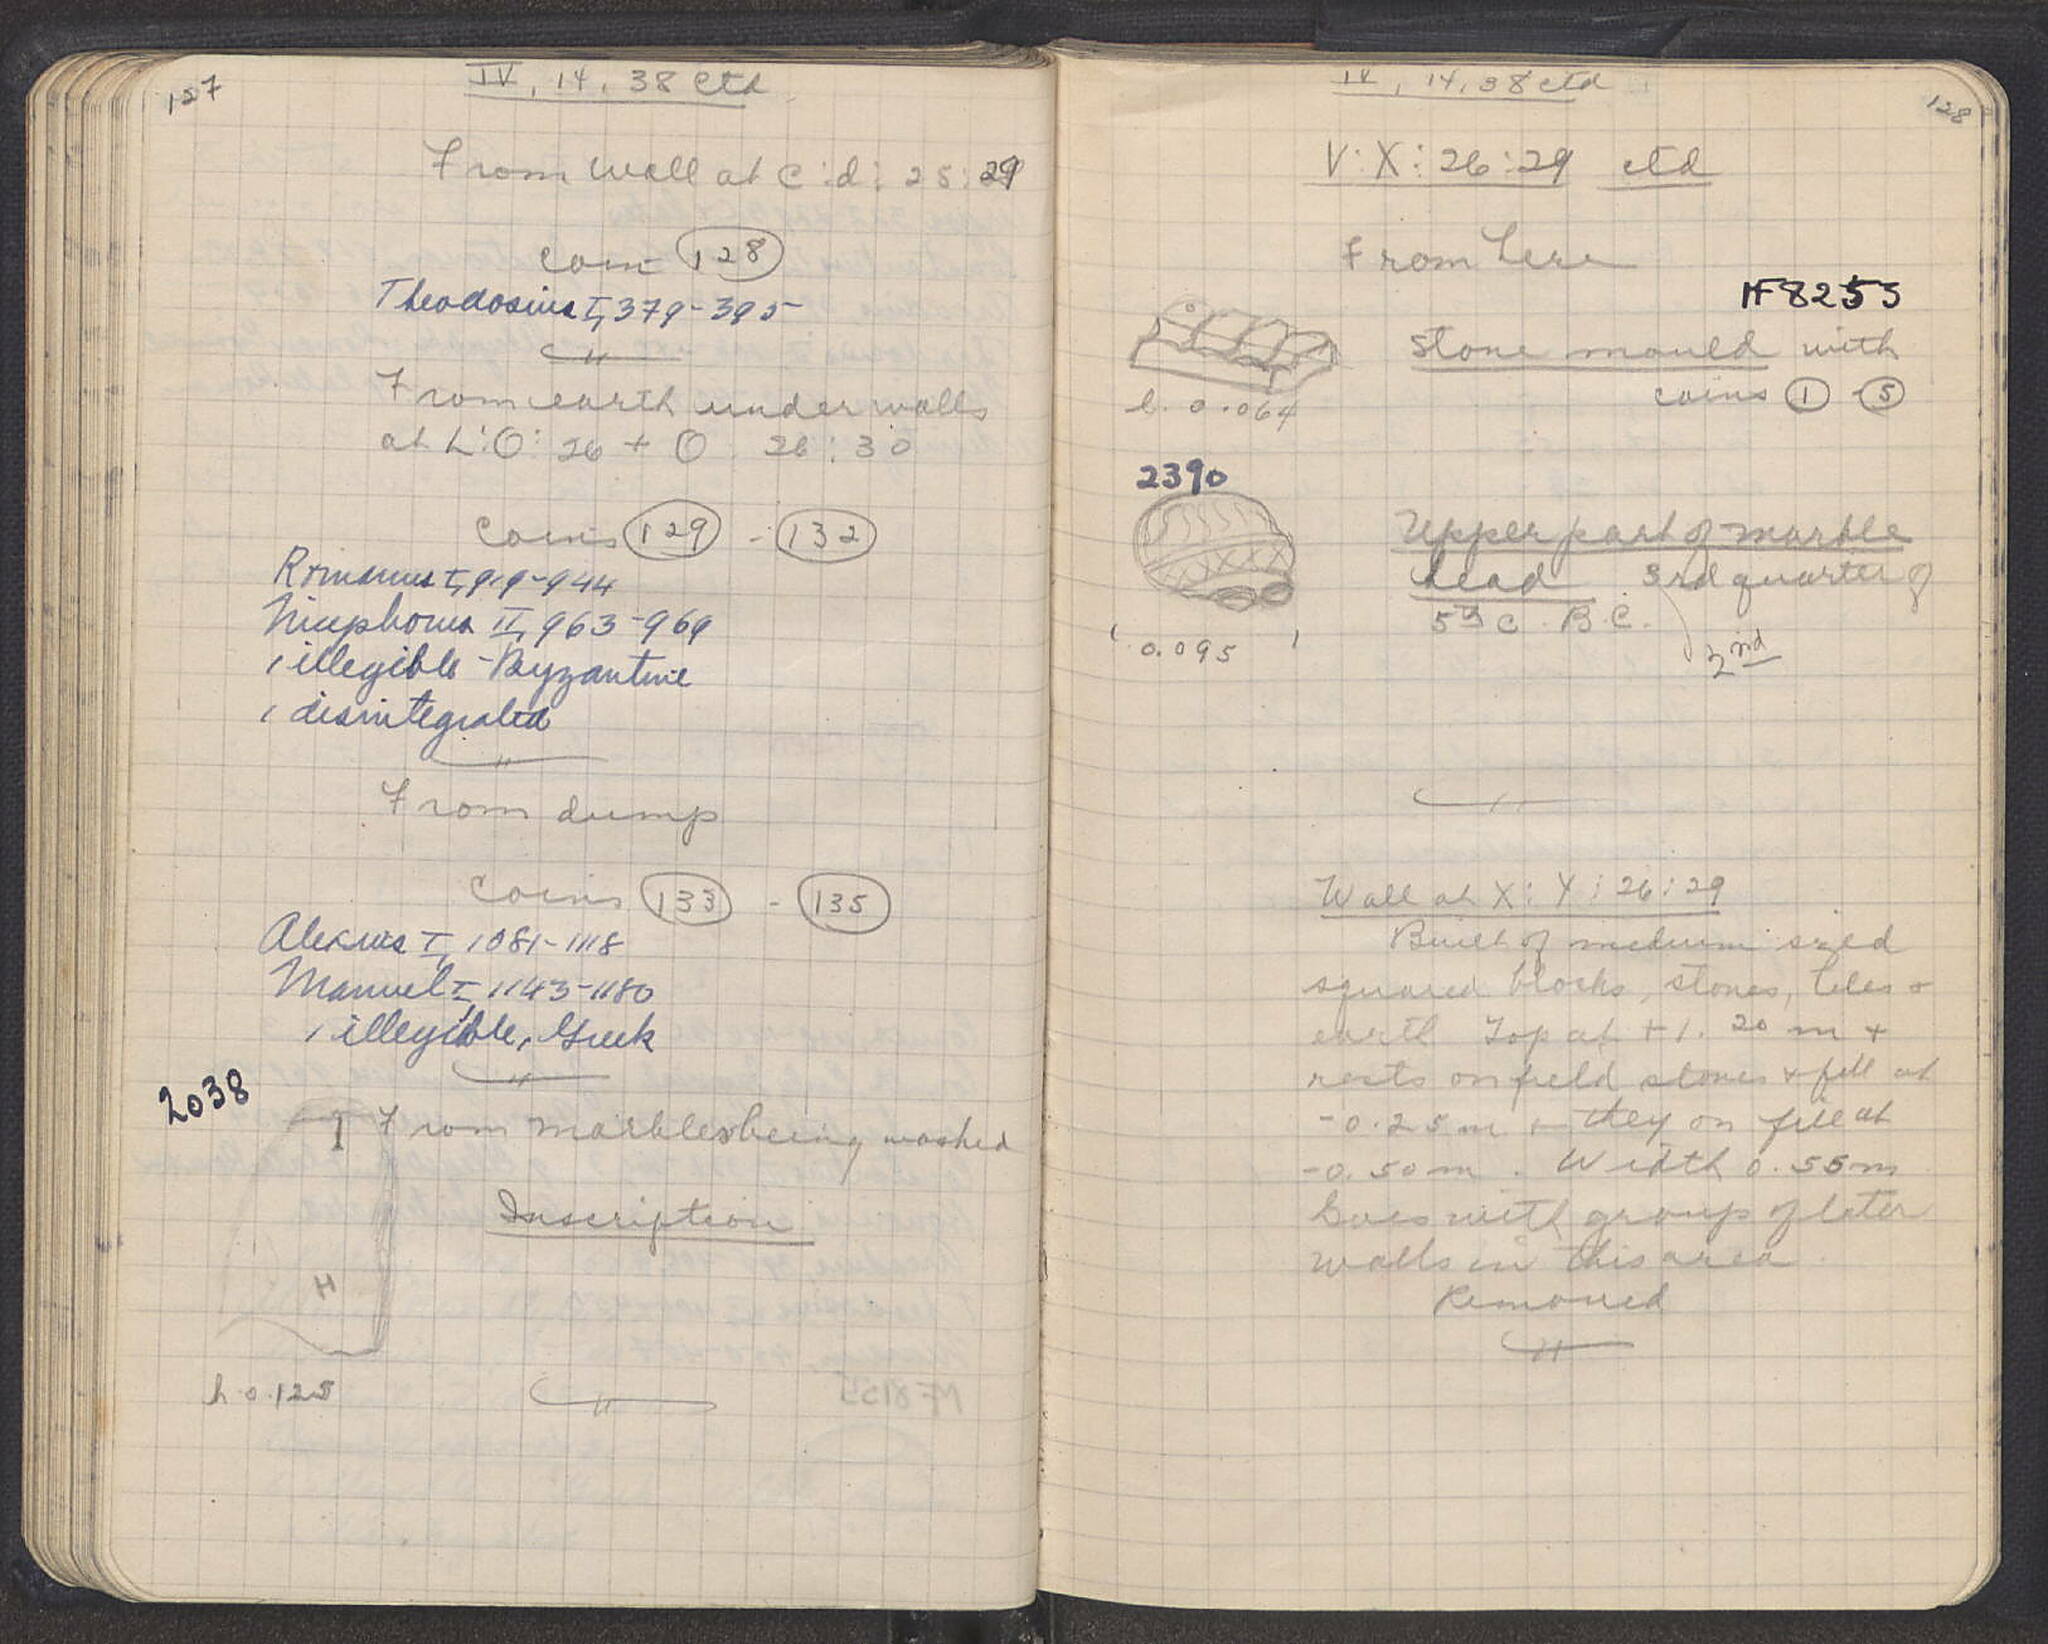 127
IV, 14, 38 ctd
From wall at C:d: 25:29
Coin 128
Theodosius I, 379-395
From earth under walls
at L:O: 26 + O 26:30
Coins 129 - 132
Romanus I, 919-944
Nicephorus II, 963-969
1 illegible - Byzantine
1 disintegrated
From dump
Coins 133 - 135
Alexius I, 1081-1118
Manuel I, 1143-1180
1 illegible, Greek
2038
From marbles being washed
Inscription
H
h 0.125
128
IV, 14, 38 ctd
V:X:26:29 ctd
From here
MF 8253
Stone mould with
coins 1 - 5
l. 0.064
2390
Upper part of marble
head 3rd quarter of
5th C. B.C.
2nd
0.095
Wall at X:Y:26:29
Built of medium sized
squared blocks, stones, tiles +
earth Top at +1.20 m +
rests on field stones + fill at
-0.25m they on fill at
-0.50m. Width 0.55m
Goes with group of later
walls in this area.
Removed